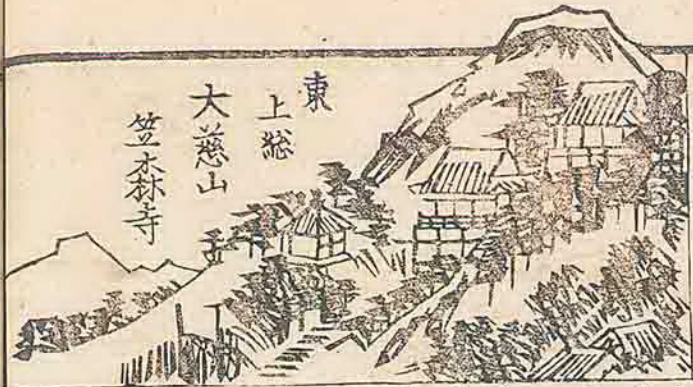 東
上総
大慈山
笠森寺